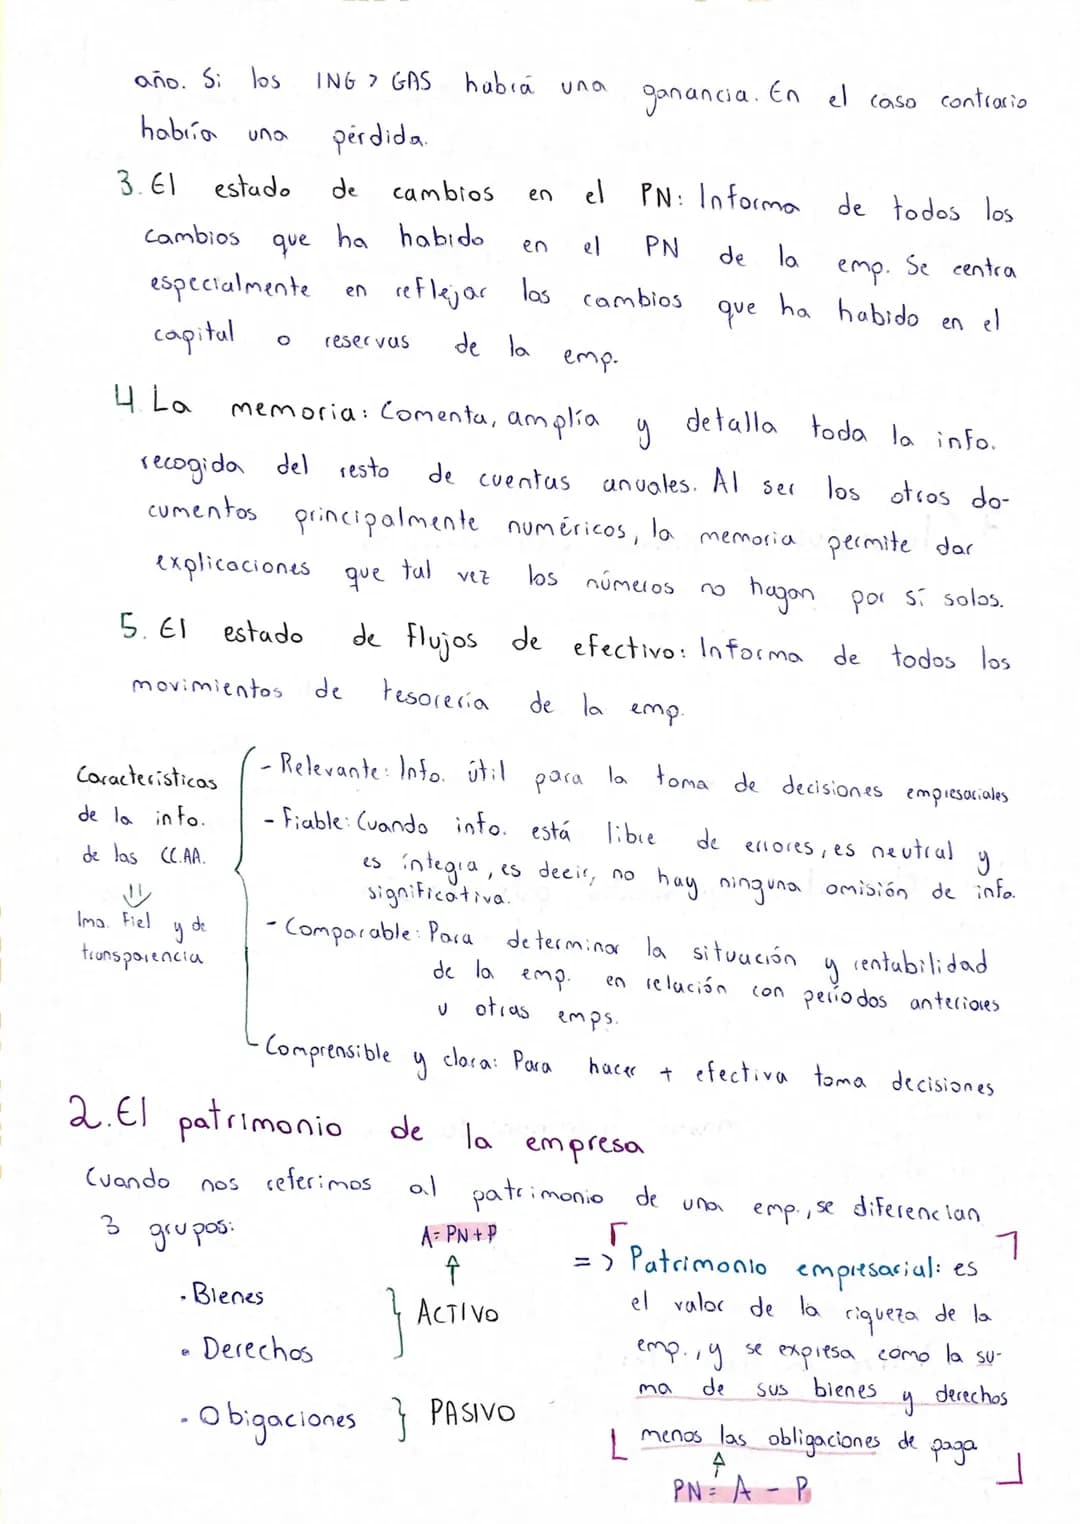 año. Si los ING > GAS habrá una ganancia. En el caso contrario
habría una pérdida.
3. El estado de cambios en el PN: Informa de todos los
cambios que ha habido en el PN de la emp. Se centra
especialmente en reflejar los cambios que ha habido en el
capital o reservas de la emp.
4. La memoria: Comenta, amplía y detalla toda la info.
recogida del resto de cuentas anuales. Al ser los otros do-
cumentos principalmente numéricos, la memoria permite dar
explicaciones que tal vez los números no hagan por sí solos.
5. El estado de flujos de efectivo: Informa de todos los
movimientos de tesorería de la emp.
Características
de la info.
de las CC.AA.
⇓
Ima. Fiel y de
transparencia
- Relevante: Info. útil para la toma de decisiones empresariales
- Fiable: Cuando info. está libre de errores, es neutral y
es íntegra, es decir, no hay ninguna omisión de info.
significativa.
- Comparable: Para determinar la situación y rentabilidad
de la emp. en relación con períodos anteriores
u otras emps.
- Comprensible y clara: Para hacer + efectiva toma decisiones
2. El patrimonio de la empresa
Cuando nos referimos al patrimonio de una emp., se diferencian
3 grupos:
A = PN + P
↑
· Bienes
· Derechos
} ACTIVO
· Obigaciones } PASIVO
=> Patrimonio empresarial: es
el valor de la riqueza de la
emp., y se expresa como la su-
ma de sus bienes y derechos
menos las obligaciones de paga
↑
PN = A - P